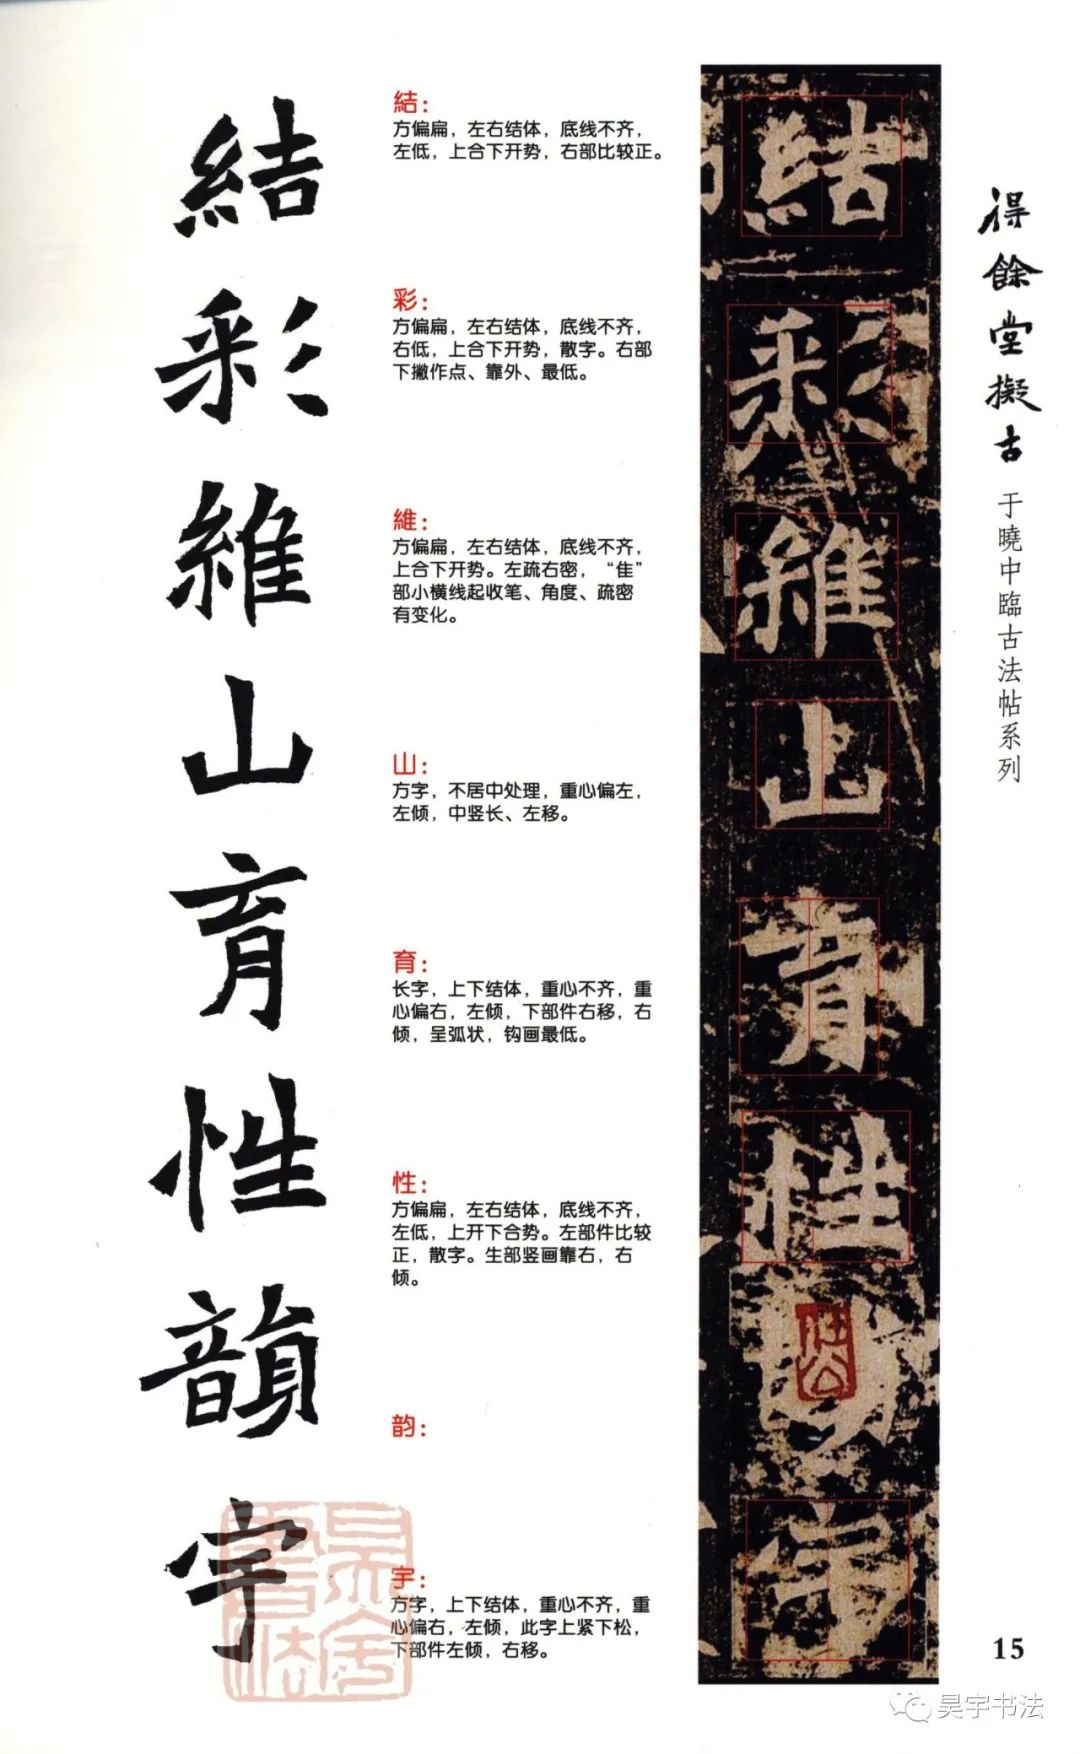 結
彩
維
山
育
性
韻
宇
結：
方偏扁，左右结体，底线不齐，
左低，上合下开势，右部比较正。
彩：
方偏扁，左右结体，底线不齐，
右低，上合下开势，散字。右部
下撇作点、靠外、最低。
維：
方偏扁，左右结体，底线不齐，
上合下开势。左疏右密，“隹”
部小横线起收笔、角度、疏密
有变化。
山：
方字，不居中处理，重心偏左，
左倾，中竖长、左移。
育：
长字，上下结体，重心不齐，重
心偏右，左倾，下部件右移，右
倾，呈弧状，钩画最低。
性：
方偏扁，左右结体，底线不齐，
左低，上开下合势。左部件比较
正，散字。生部竖画靠右，右
倾。
韵：
宇：
方字，上下结体，重心不齐，重
心偏右，左倾，此字上紧下松，
下部件左倾，右移。
結
彩
維
山
育
性
宇
得餘堂擬古
于曉中臨古法帖系列
15
昊宇书法